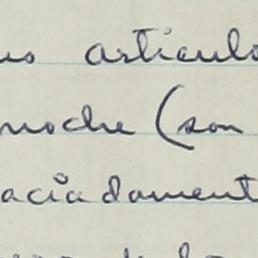 us articulo
noche (son
aciadament